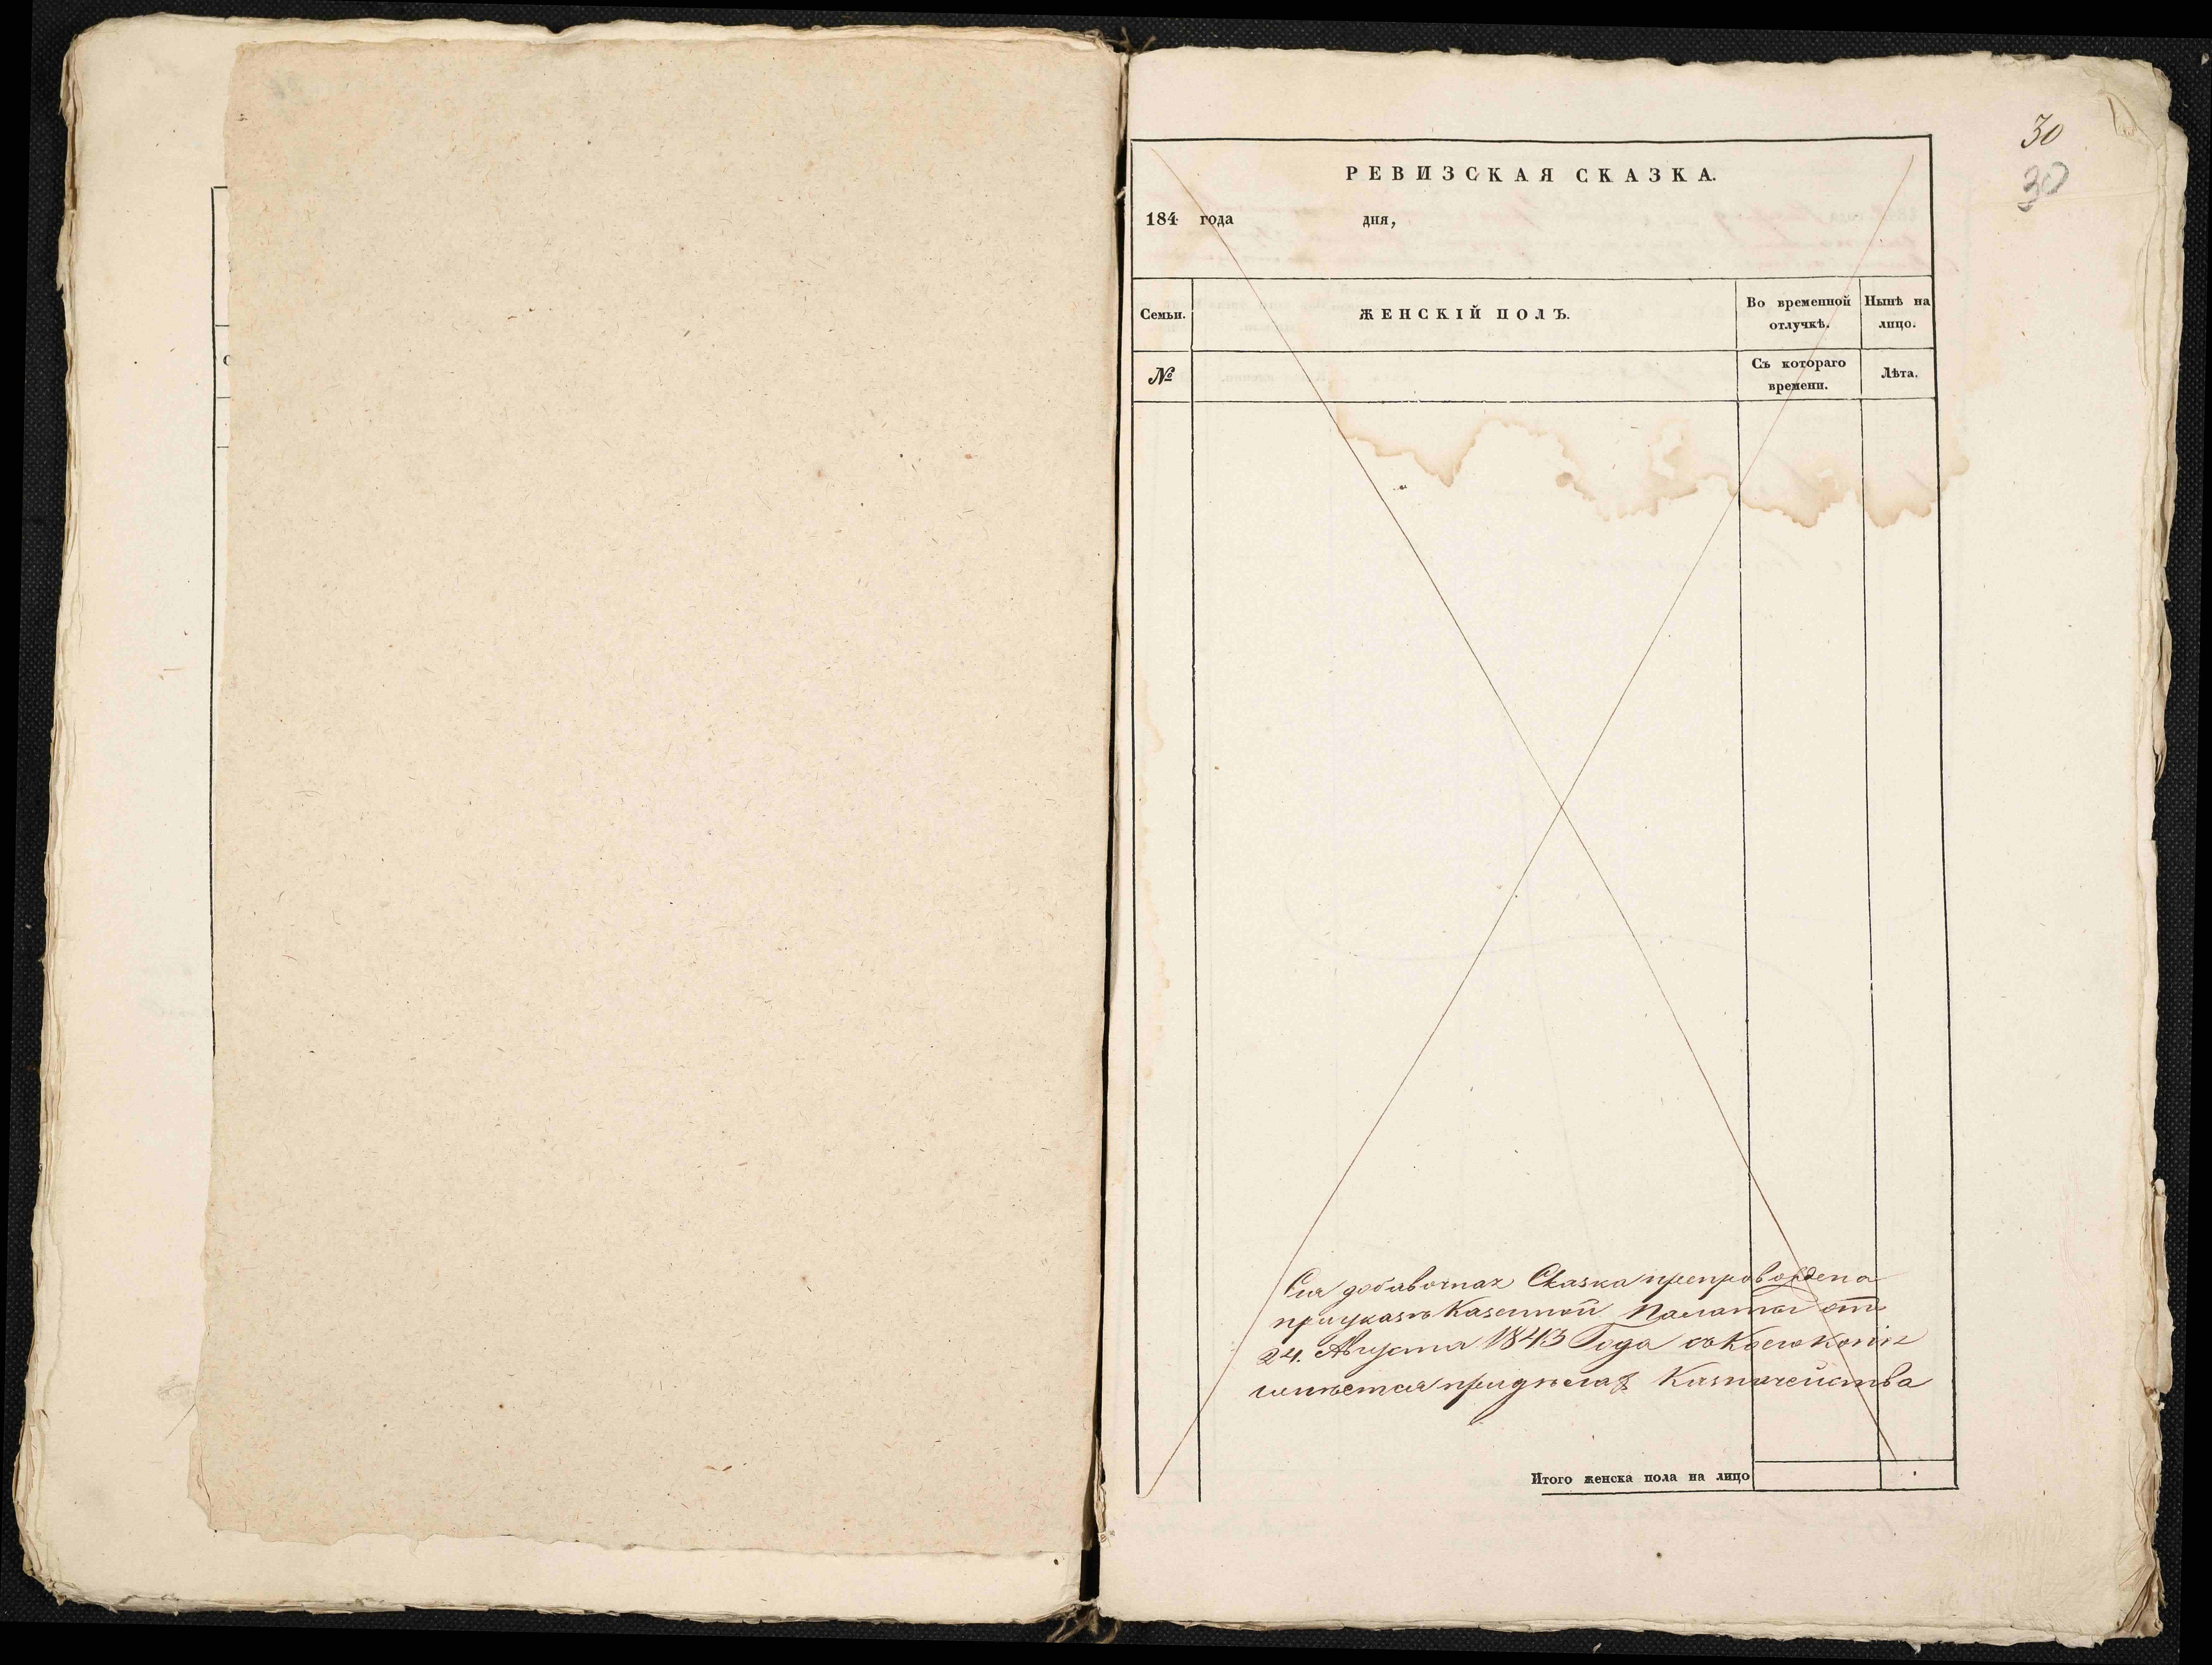 30
30
РЕВИЗСКАЯ СКАЗКА.
184 года дня,
Семьи. ЖЕНСКІЙ ПОЛЪ. Во временной отлучкѣ. Нынѣ на лицо.
№ Съ котораго времени. Лѣта.
Сия добавочная Сказка препровождена
при указѣ Казенной Палаты отъ
24. Августа 1843 Года съ коего копія
имѣется при дѣлах Казначейства
Итого женска пола на лицо